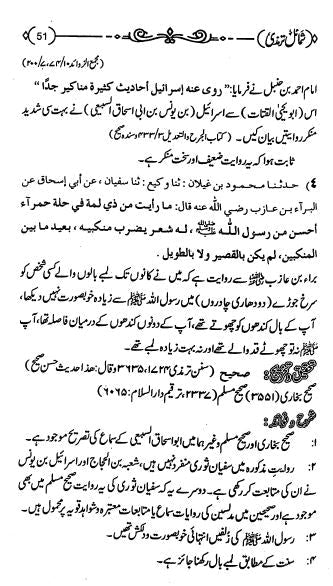 شمائل ترمذی
51
(مجمع الزوائد ۷۴/۱۰، ۲۰۰/۷)
امام احمد بن حنبل نے فرمایا: "روی عنه إسرائيل أحاديث كثيرة مناكير جدًا"
اس (ابویحییٰ القتات) سے اسرائیل (بن یونس بن ابی اسحاق السبیعی) نے بہت سی شدید
منکر روایتیں بیان کیں۔ (کتاب الجرح والتعدیل ۴۳۳/۳ وسندہ صحیح)
ثابت ہوا کہ یہ روایت ضعیف اور سخت منکر ہے۔
٤) حدثنا محمود بن غيلان: ثنا وكيع: ثنا سفيان، عن أبي إسحاق عن
البرآء بن عازب رضي الله عنه قال: ما رأيت من ذي لمة في حلة حمرآء
أحسن من رسول الله ﷺ، له شعر يضرب منكبيه، بعيد ما بين
المنكبين، لم يكن بالقصير ولا بالطويل.
براء بن عازب ﷺ سے روایت ہے کہ میں نے کانوں تک لمبے بالوں والے کسی شخص کو
سرخ جوڑے (دو دھاری چادروں) میں رسول اللہ ﷺ سے زیادہ خوبصورت نہیں دیکھا،
آپ کے بال کندھوں کو چھوتے تھے، آپ کے دونوں کندھوں کے درمیان فاصلہ تھا، آپ
ﷺ نہ تو چھوٹے قد والے تھے اور نہ بہت لمبے تھے۔
تحقیق و تخریج: صحیح (سنن ترمذی: ۱۷۲۴، ۳۶۳۵ وقال: ھذا حدیث حسن صحیح)
صحیح بخاری (۳۵۵۱) صحیح مسلم (۲۳۳۷، ترقیم دارالسلام: ۶۰۶۵)
شرح و فوائد:
۱: صحیح بخاری اور صحیح مسلم وغیرہما میں ابو اسحاق السبیعی کے سماع کی تصریح موجود ہے۔
۲: روایت مذکورہ میں سفیان ثوری منفرد نہیں ہیں، شعبہ بن الحجاج اور اسرائیل بن یونس
نے ان کی متابعت کر رکھی ہے۔ دوسرے یہ کہ سفیان ثوری کی یہ روایت صحیح مسلم میں بھی
موجود ہے اور صحیحین میں مدلسین کی روایات سماع یا متابعات معتبرہ و شواہد قویہ پر محمول ہیں۔
۳: رسول اللہ ﷺ کی زلفیں انتہائی خوبصورت و دلکش تھیں۔
۴: سنت کے مطابق لمبے بال رکھنا جائز ہے۔